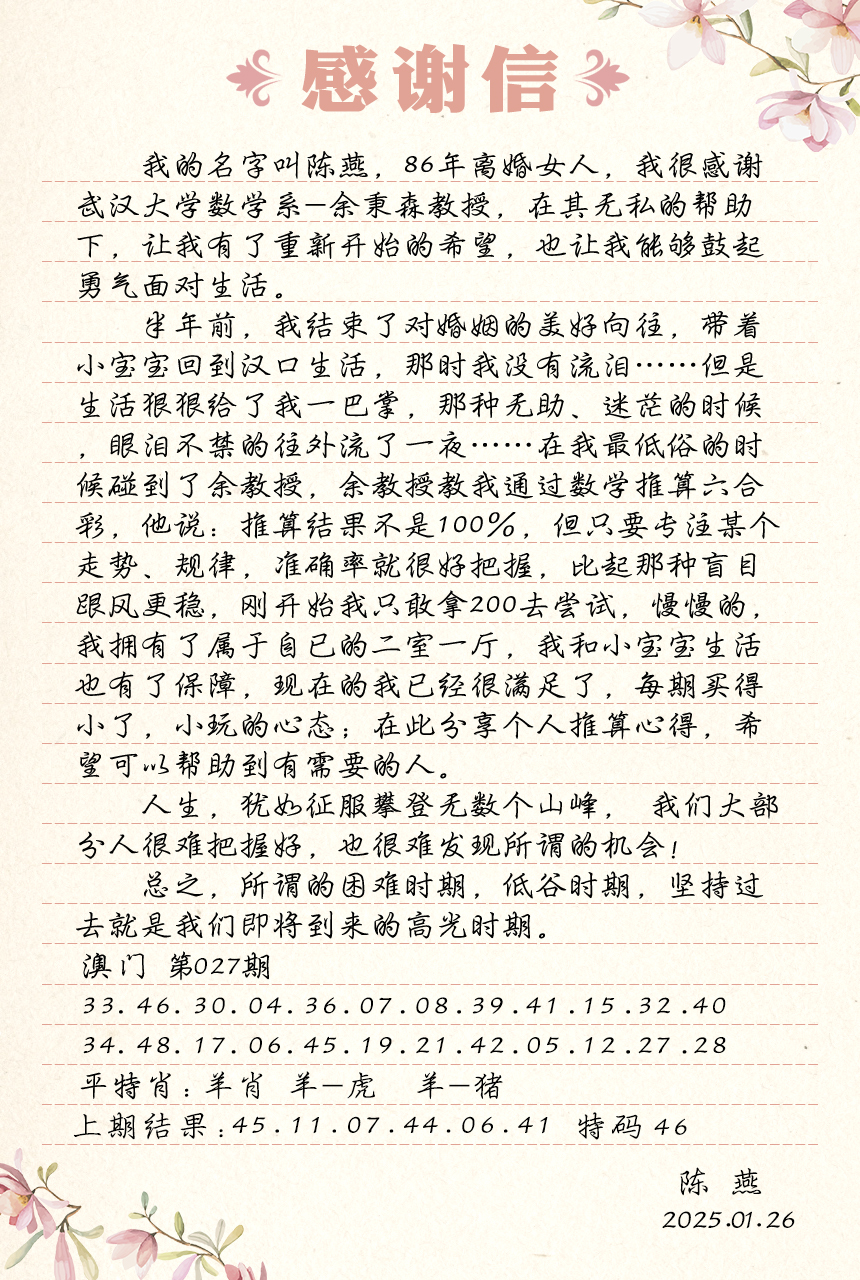 感谢信
我的名字叫陈燕，86年离婚女人，我很感谢
武汉大学数学系—余秉森教授，在其无私的帮助
下，让我有了重新开始的希望，也让我能够鼓起
勇气面对生活。
半年前，我结束了对婚姻的美好向往，带着
小宝宝回到汉口生活，那时我没有流泪……但是
生活狠狠给了我一巴掌，那种无助、迷茫的时候
，眼泪不禁的往外流了一夜……在我最低俗的时
候碰到了余教授，余教授教我通过数学推算六合
彩，他说：推算结果不是100%，但只要专注某个
走势、规律，准确率就很好把握，比起那种盲目
跟风更稳，刚开始我只敢拿200去尝试，慢慢的，
我拥有了属于自已的二室一厅，我和小宝宝生活
也有了保障，现在的我已经很满足了，每期买得
小了，小玩的心态；在此分享个人推算心得，希
望可以帮助到有需要的人。
人生，犹如征服攀登无数个山峰， 我们大部
分人很难把握好，也很难发现所谓的机会！
总之，所谓的困难时期，低谷时期，坚持过
去就是我们即将到来的高光时期。
澳门 第027期
33.46.30.04.36.07.08.39.41.15.32.40
34.48.17.06.45.19.21.42.05.12.27.28
平特肖：羊肖 羊—虎 羊—猪
上期结果：45.11.07.44.06.41 特码 46
陈 燕
2025.01.26